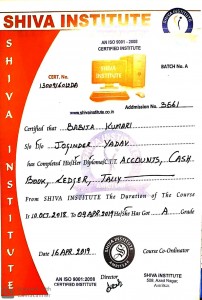 SHIVA INSTITUTE
SHIVA INSTITUTE
AN ISO 9001 : 2008
CERTIFIED INSTITUTE
BATCH No. A
CERT. No.
www.shivainstitute.in
Admission No. 3661
Certified that BABITA KUMARI
S/o D/o JOGINDER YADAV
has Completed His/Her Diploma/CTE ACCOUNTS, CASH
BOOK, LEDGER, TALLY
From SHIVA INSTITUTE The Duration of the Course
10.OCT.2018 to 09.APR.2019 He/She Has Got A Grade
Date 16 APR. 2019
Course Co-Ordinator
AN ISO 9001:2008
CERTIFIED INSTITUTE
SHIVA INSTITUTE
SHIVA INSTITUTE
Director
Amritsar